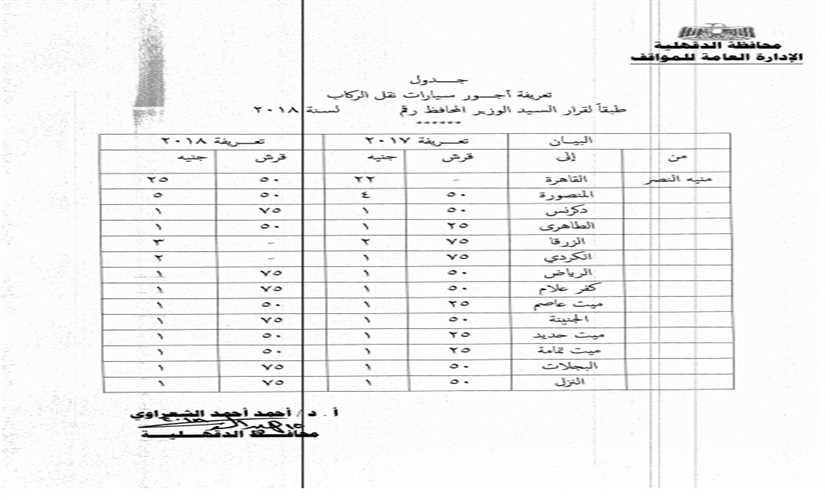 محافظة الدقهلية
الإدارة العامة للمواقف
جـــدول
تعريفة أجـور سيارات نقل الركاب
طبقاً لقرار السيد الوزير المحافظ رقم لسنة ٢٠١٨
******
البيـــان تعـريفة ٢٠١٧ تعـريفة ٢٠١٨
من إلى قرش جنيه قرش جنيه
منيه النصر القاهرة - ٢٢ ٥٠ ٢٥
المنصورة ٥٠ ٤ ٥٠ ٥
دكرنس ٥٠ ١ ٧٥ ١
الطاهرى ٢٥ ١ ٥٠ ١
الزرقا ٧٥ ٢ - ٣
الكردي ٧٥ ١ - ٢
الرياض ٥٠ ١ ٧٥ ١
كفر علام ٥٠ ١ ٧٥ ١
ميت عاصم ٢٥ ١ ٥٠ ١
الجنينة ٥٠ ١ ٧٥ ١
ميت حديد ٢٥ ١ ٥٠ ١
ميت تمامة ٢٥ ١ ٥٠ ١
البجلات ٥٠ ١ ٧٥ ١
النزل ٥٠ ١ ٧٥ ١
أ . د / أحمد أحمد الشعراوي
محافـــظ الدقهـلـيـة